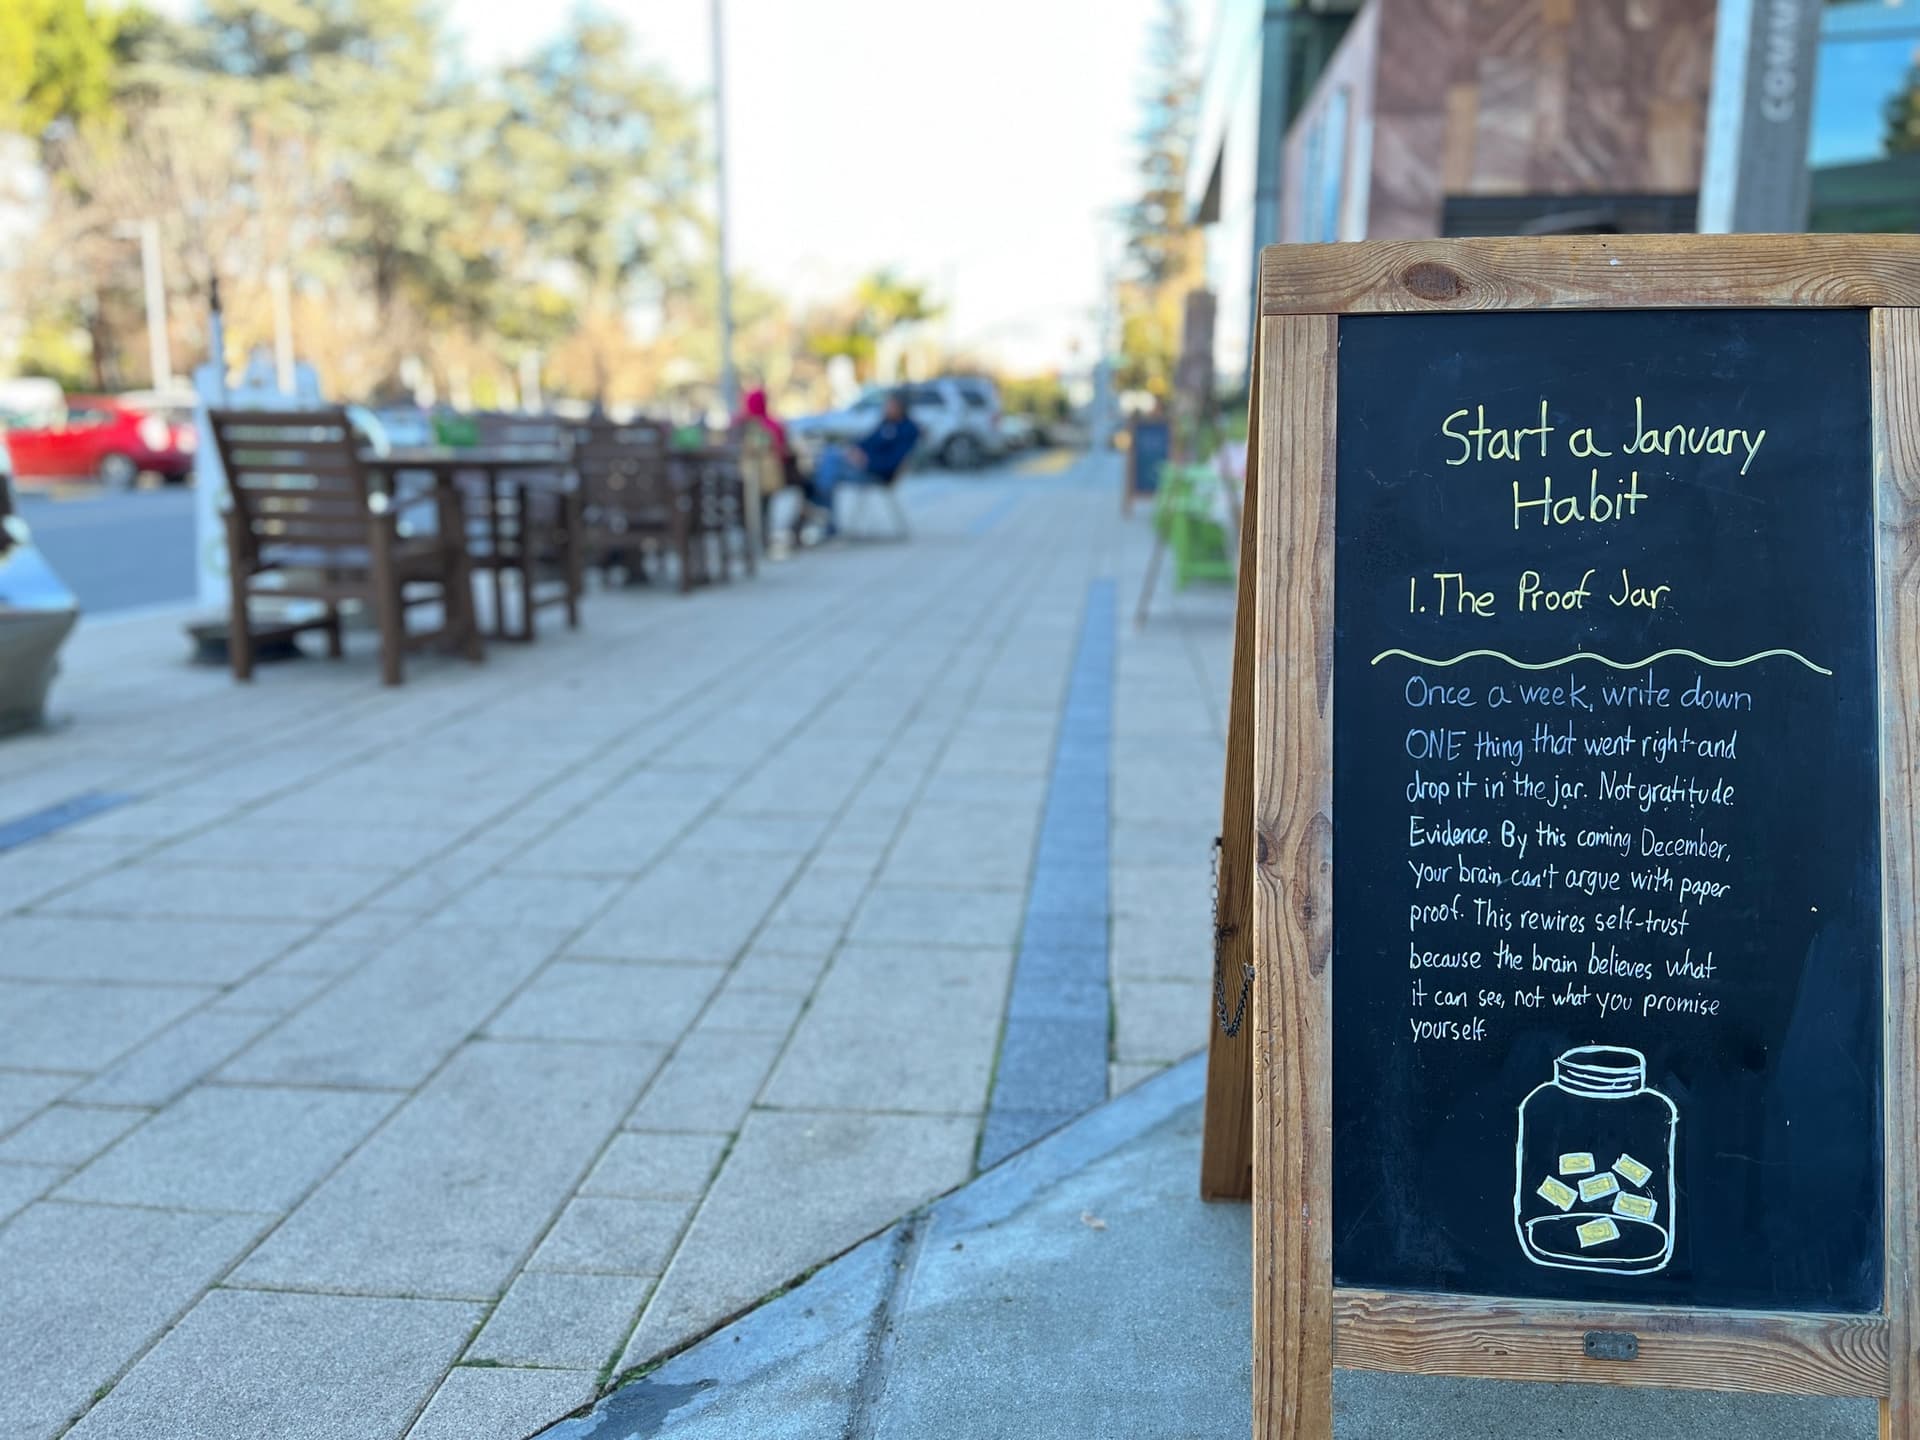 COMM
Start a January
Habit
1. The Proof Jar
Once a week, write down
ONE thing that went right-and
drop it in the jar. Not gratitude.
Evidence. By this coming December,
your brain can't argue with paper
proof. This rewires self-trust
because the brain believes what
it can see, not what you promise
yourself.